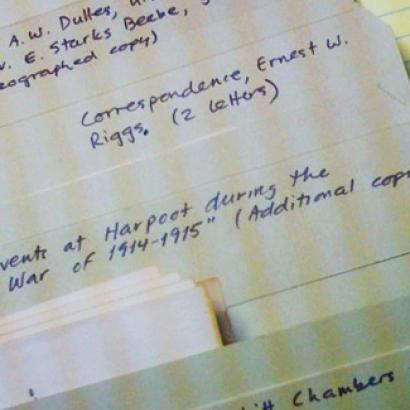 A. W. Dulles,
W. E. Starks Beebe,
eographed copy)
Correspondence, Ernest W.
Riggs. (2 letters)
vents at Harpoot during the
War of 1914-1915" (Additional cop
Chambers